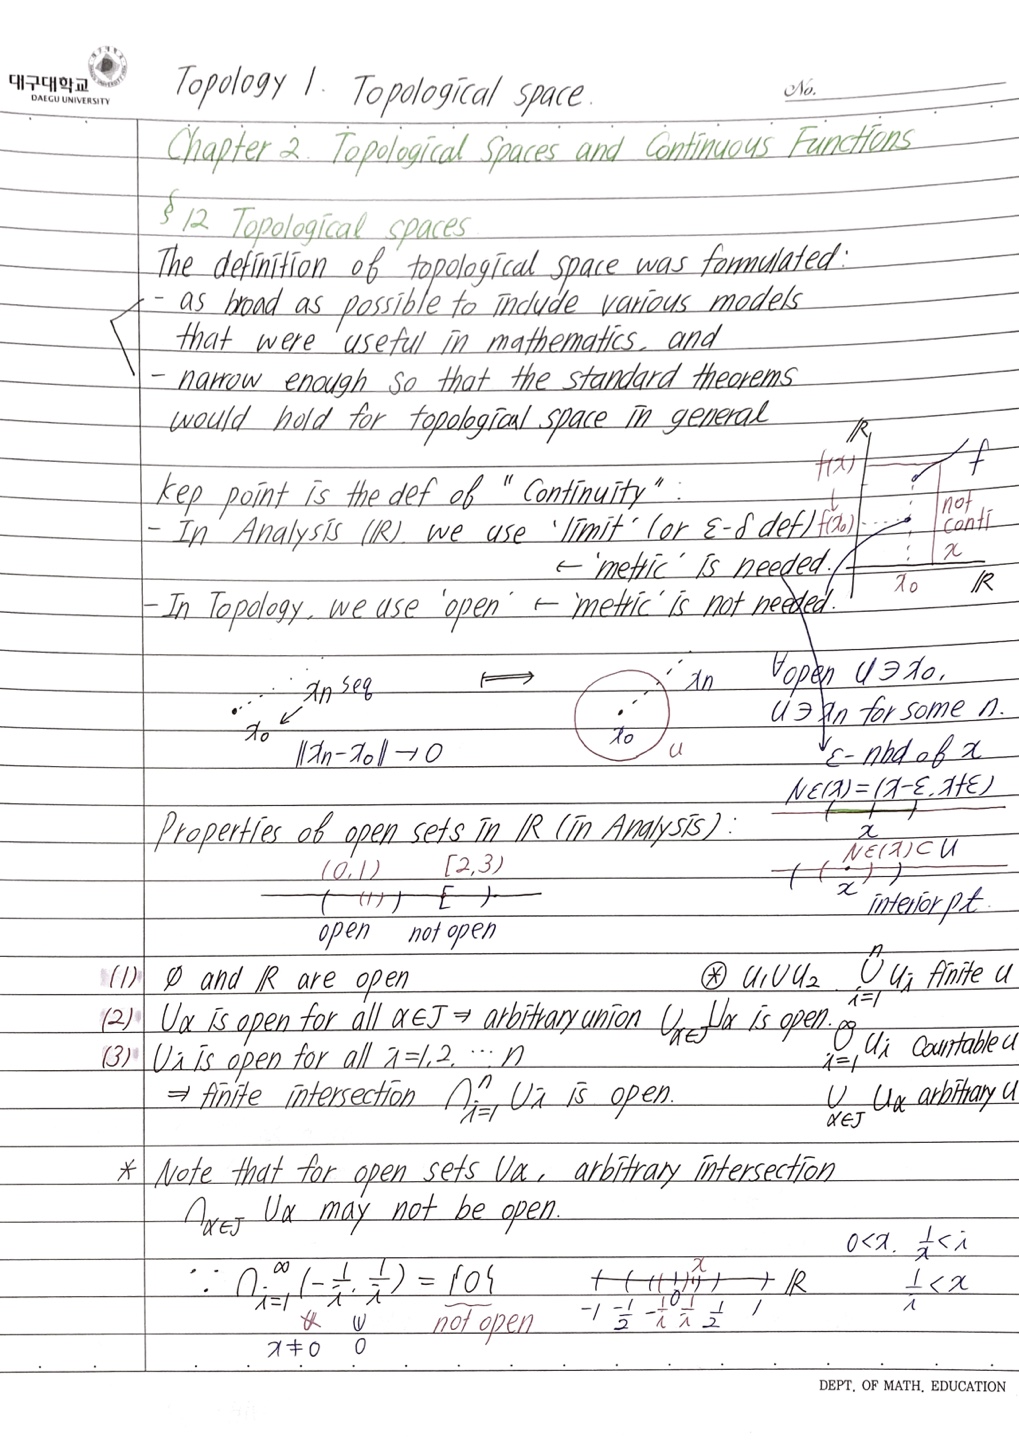 대구대학교
DAEGU UNIVERSITY
Topology 1. Topological space.
No.
Chapter 2. Topological Spaces and Continuous Functions
§ 12 Topological spaces
The definition of topological space was formulated:
- as broad as possible to include various models
that were useful in mathematics, and
- narrow enough so that the standard theorems
would hold for topological space in general
kep point is the def of "Continuity":
- In Analysis (ℝ), we use 'limit' (or ε-δ def)
← 'metric' is needed.
- In Topology, we use 'open' ← 'metric' is not needed.
ℝ
f(x) f
↓
f(x₀)
not
conti
x
x₀ ℝ
xₙ seq ⟼ xₙ
x₀ x₀ U
‖xₙ-x₀‖→0
∀open U∋x₀,
U∋xₙ for some n.
ε-nbd of x
Nε(x)=(x-ε, x+ε)
x
Nε(x)⊂U
x
interior pt.
Properties of open sets in ℝ (in Analysis):
(0,1) [2,3)
open not open
(1) ∅ and ℝ are open
(2) Uα is open for all α∈J ⇒ arbitrary union ⋃α∈J Uα is open.
(3) Uᵢ is open for all i=1,2, ⋯ n
⇒ finite intersection ⋂ⁿᵢ₌₁ Uᵢ is open.
⊛ U₁∪U₂ ⋃ⁿᵢ₌₁ Uᵢ finite U
⋃^∞ᵢ₌₁ Uᵢ countable U
⋃α∈J Uα arbitrary U
* Note that for open sets Uα, arbitrary intersection
⋂α∈J Uα may not be open.
∵ ⋂^∞ᵢ₌₁ (-1/i, 1/i) = {0}
not open
x≠0 0
x
ℝ
0
-1 -1/2 -1/i 1/i 1/2 1
0<x, 1/x<i
1/i<x
DEPT. OF MATH. EDUCATION